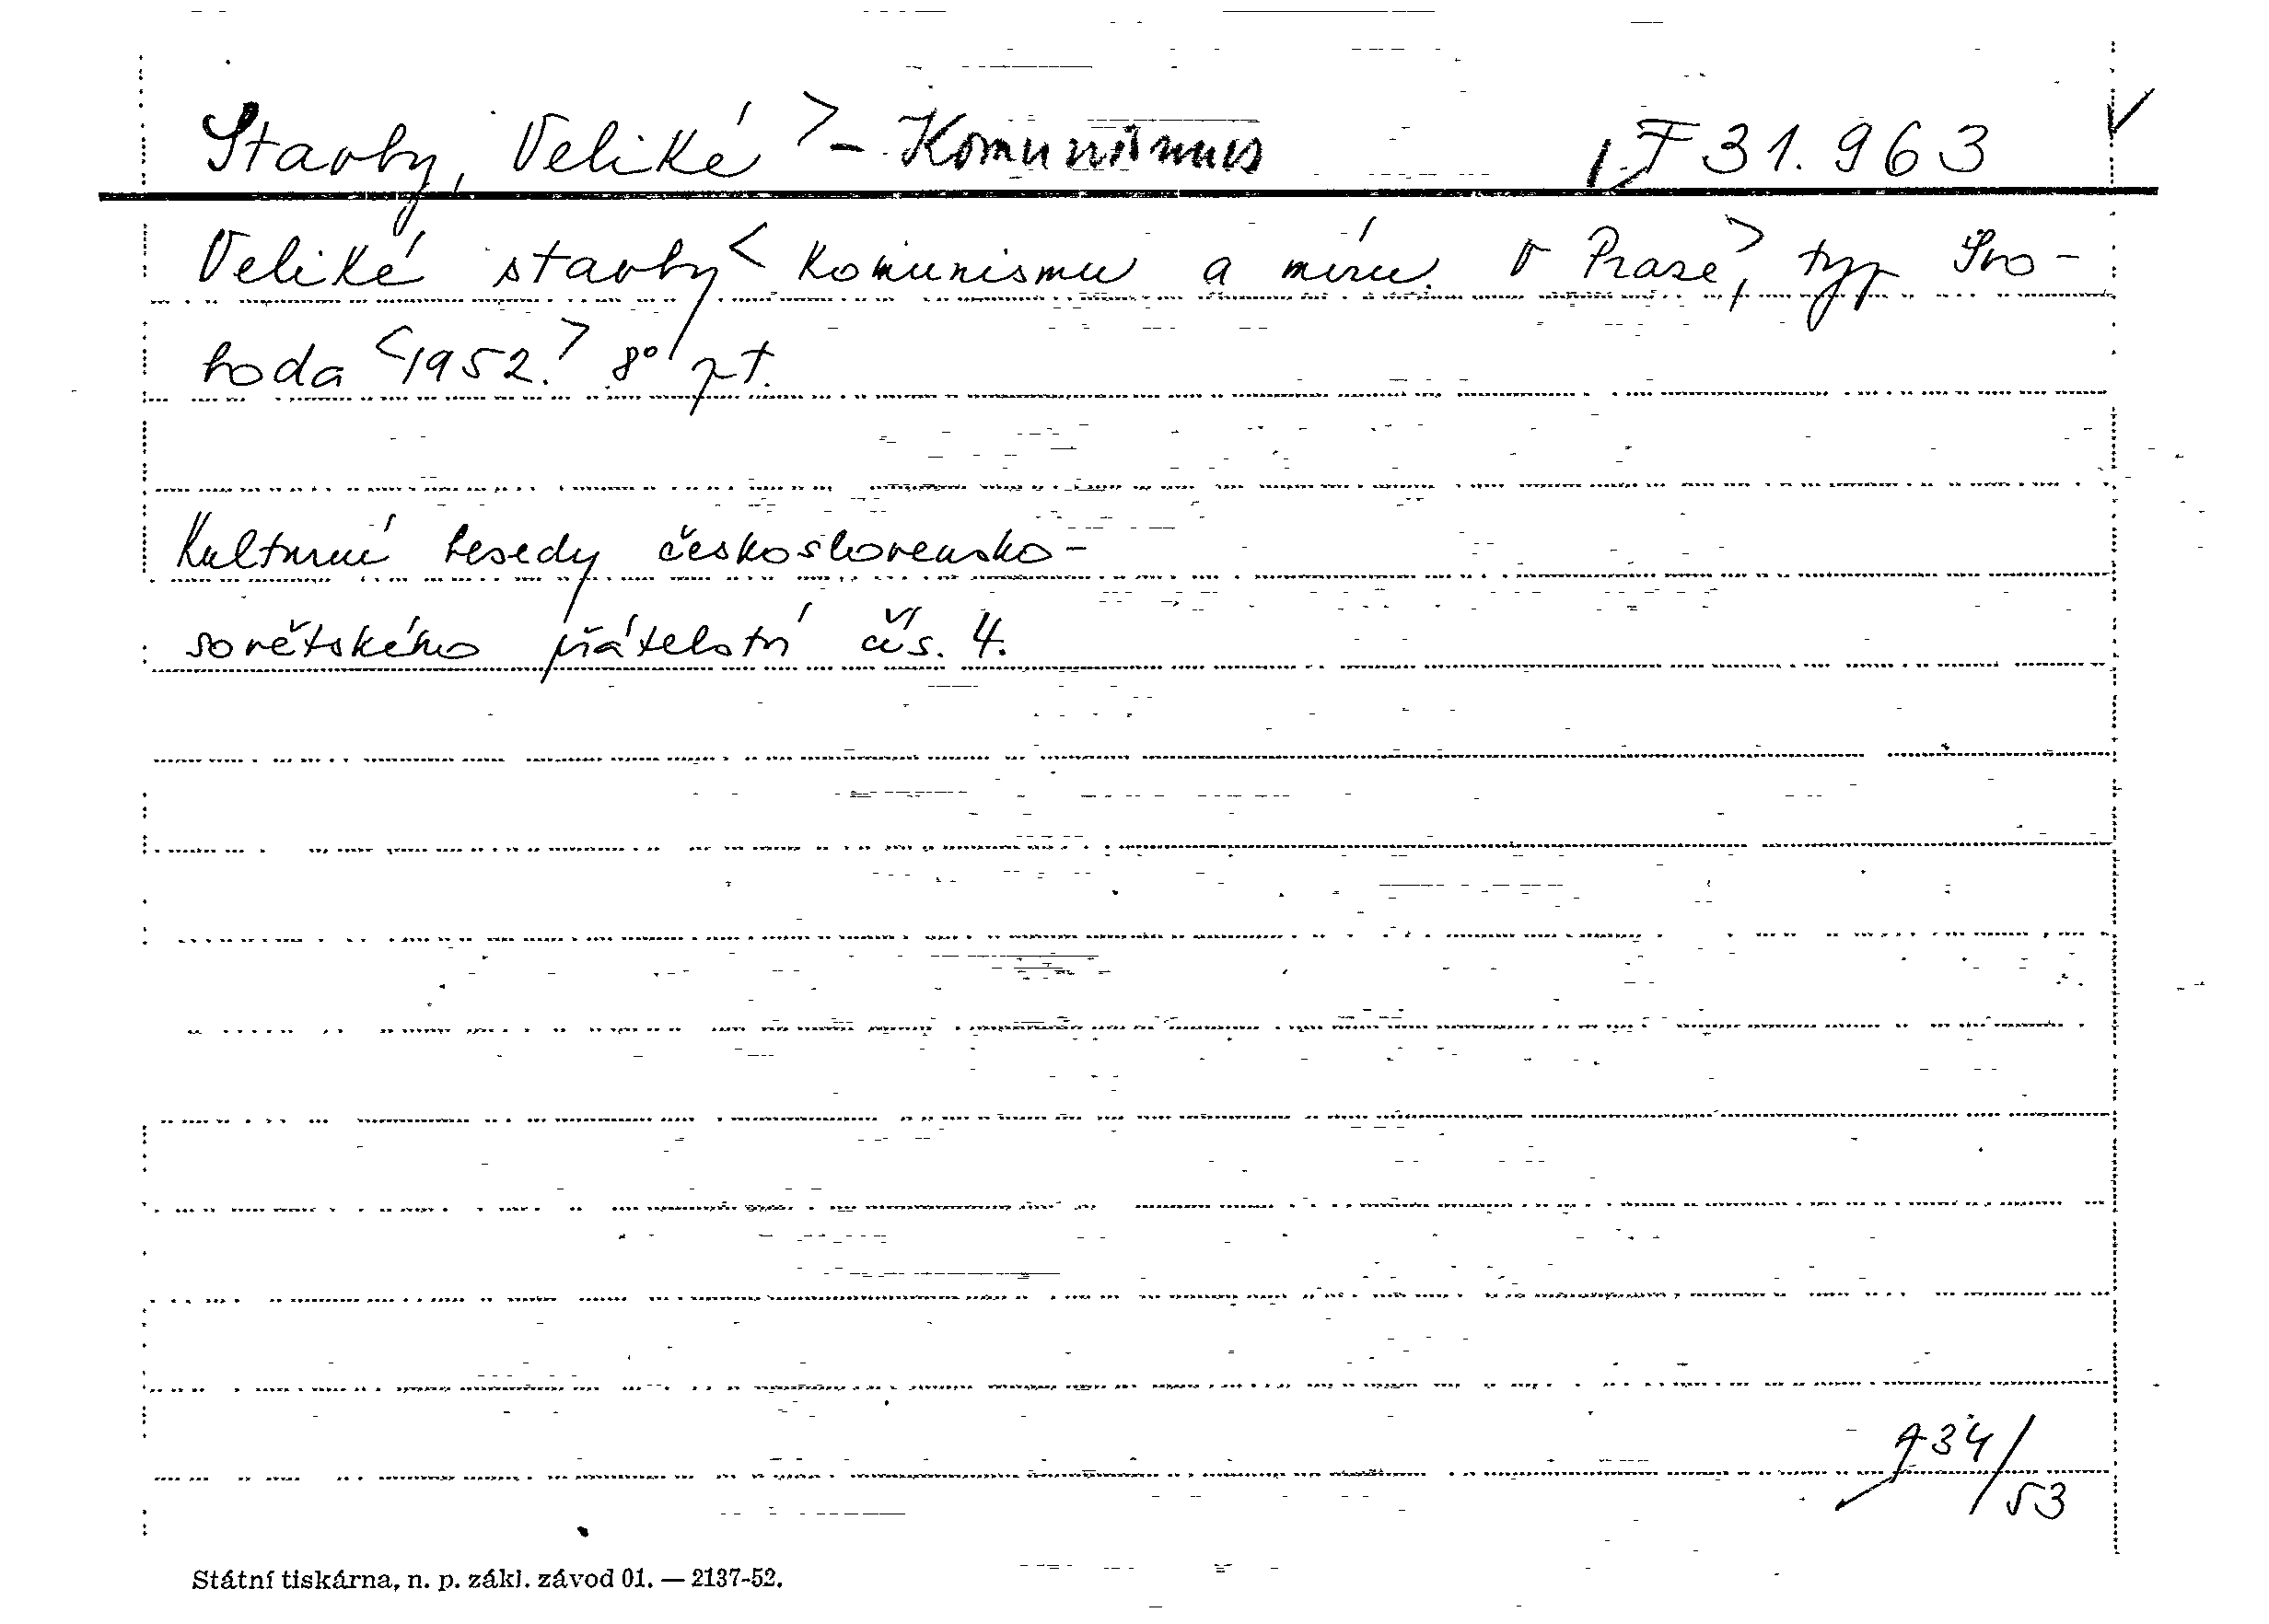 Stavby, Veliké > - Komunismus I F 31.963
Veliké stavby < komunismu a míru. V Praze, > typ Svo-
boda <1952.> 8° pt.
Kulturní besedy československo-
sovětského přátelství čís. 4.
934/53
Státní tiskárna, n. p. zákl. závod 01. — 2137-52.